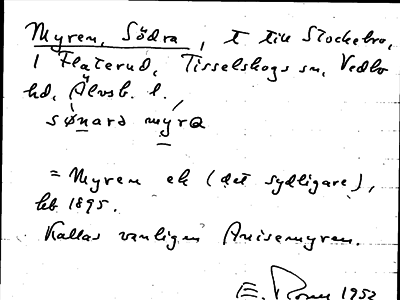 Myren, Södra, t till Stockebro,
1 Flaterud, Tisselskogs sn, Vedbo
hd, Älvsb. l.
sønarə myra
= Myren ek (det sydligare),
leb 1895.
Kallas vanligen Anisemyren.
E. 1952